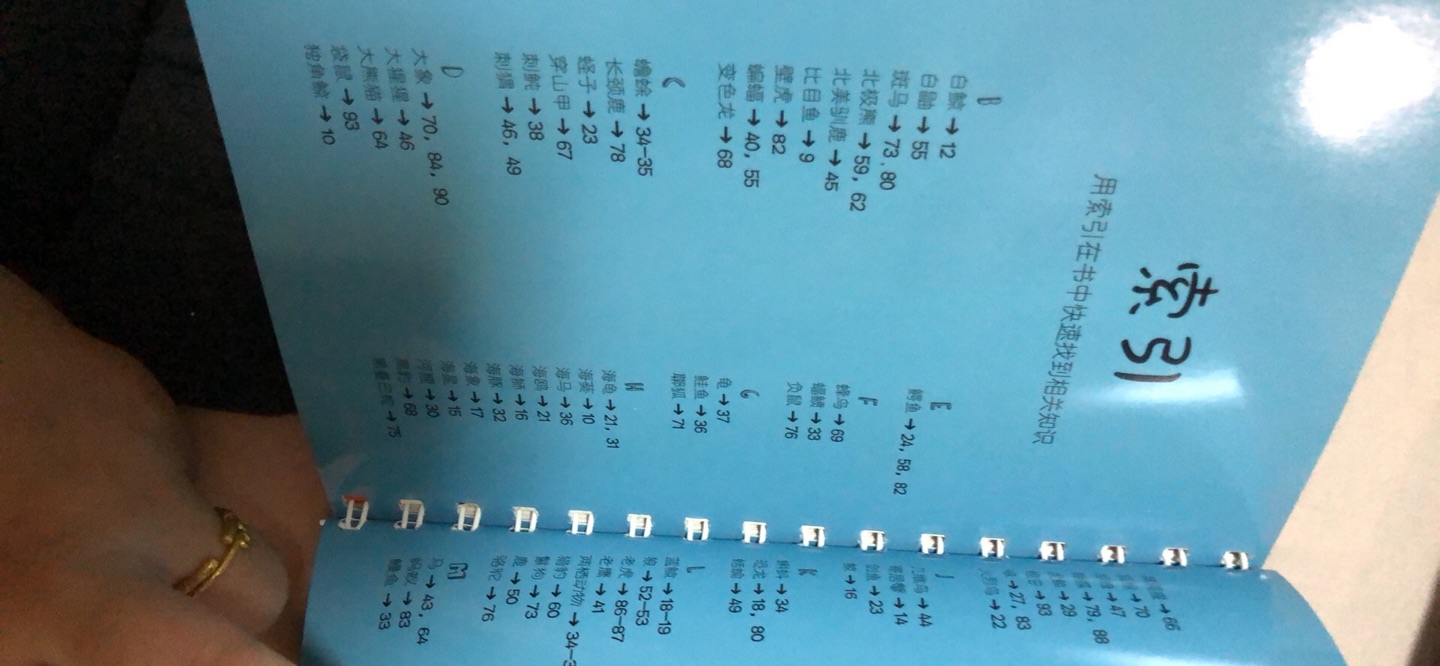 索引
用索引在书中快速找到相关知识
B
白鲸→12
白鼬→55
斑马→73，80
北极熊→59，62
北美驯鹿→45
比目鱼→9
壁虎→82
蝙蝠→40，55
变色龙→68
C
蟾蜍→34-35
长颈鹿→78
蛏子→23
穿山甲→67
刺鲀→38
刺猬→46，49
D
大象→70，84，90
大猩猩→46
大熊猫→64
袋鼠→93
独角鲸→10
E
鳄鱼→24，58，82
F
蜂鸟→69
蝠鲼→33
负鼠→76
G
龟→37
鲑鱼→36
郭狐→71
H
海龟→21，31
海葵→10
海马→36
海鸥→21
海狮→16
海豚→32
海象→17
海星→15
河狸→30
黑豹→68
→75
→66
→70
→47
→79，88
→29
→93
→27，83
→22
J
→44
寄居蟹→14
剑鱼→23
鲸→16
K
蝌蚪→34
恐龙→18，80
→49
L
蓝鲸→18-19
狼→52-53
老虎→86-87
老鹰→41
两栖动物→34-
猎豹→60
鬣狗→73
鹿→50
骆驼→76
M
马→43，64
蚂蚁→63
鳗鱼→33